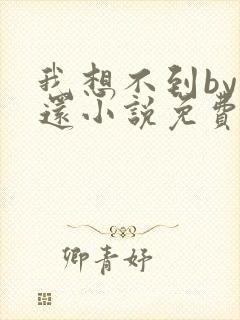 我想不到by
还小說免費
卿青妤